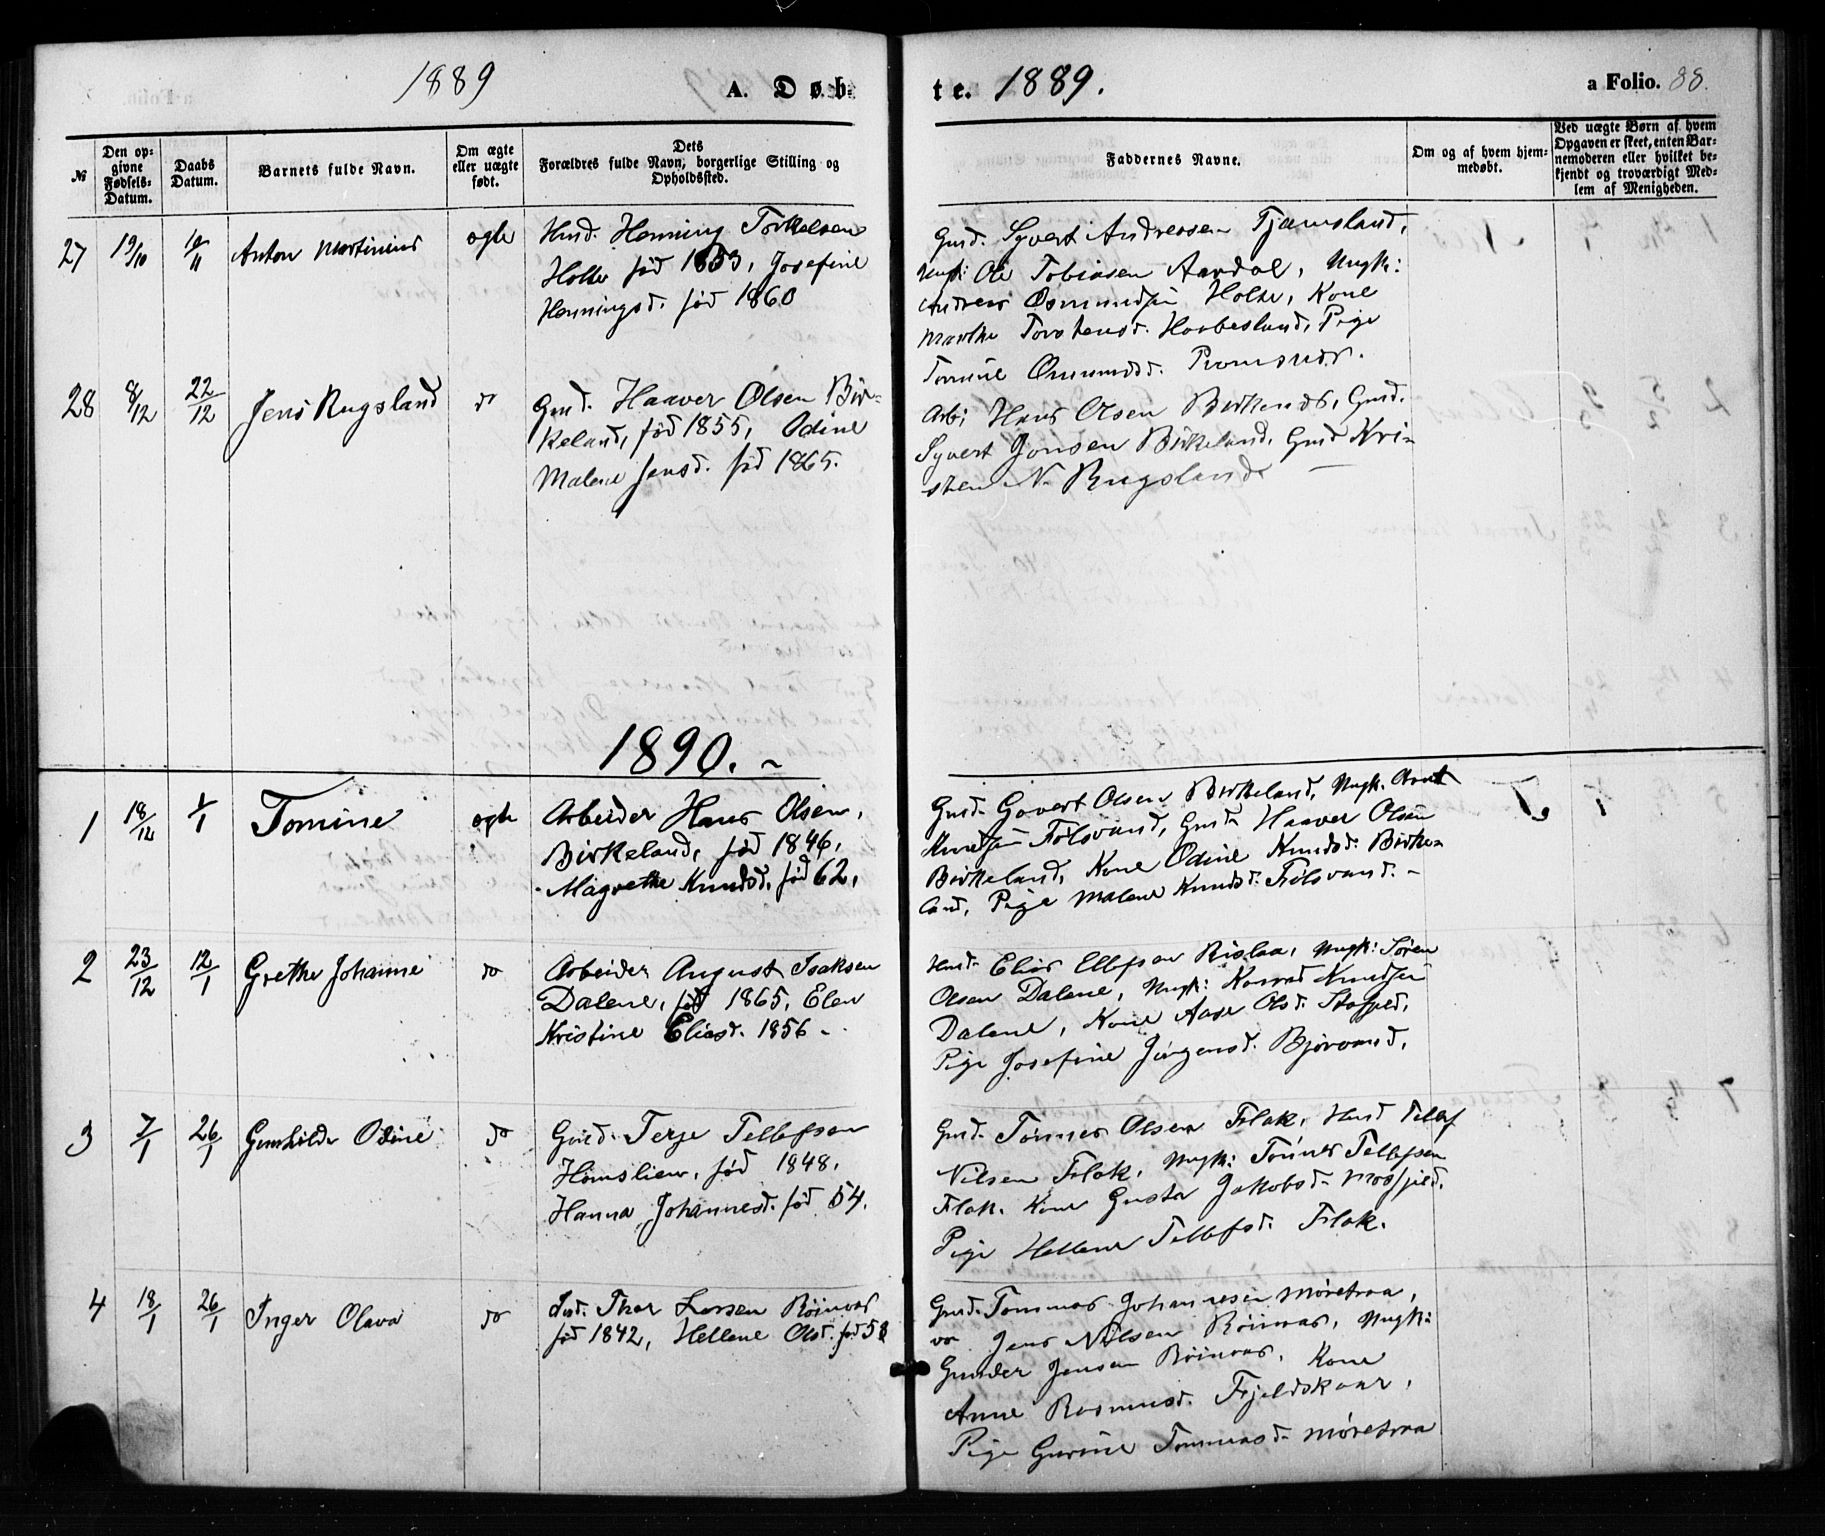 1889 A. Døb-
te. 1889. a Folio. 88.
№
Den op-
givne
Fødsels-
Datum.
Daabs
Datum.
Barnets fulde Navn.
Om ægte
eller uægte
født.
Dets
Forældres fulde Navn, borgerlige Stilling og
Opholdssted.
Faddernes Navne.
Om og af hvem hjem-
medøbt.
Ved uægte Børn af hvem
Opgaven er skeet, enten Bar-
nemoderen eller hvilket be-
kjendt og troværdigt Med-
lem af Menigheden.
27 19/10 10/11 Anton Martinius ægte
Husd. Henning Torkelsen
Holte fød 1853, Josefine
Henningsd. fød 1860
Gmd. Syvert Andreasen Tjamsland,
Ole Tobiasen Aardal, Ungk:
Andreas Osmundsen Holte, Kone
Marthe Torstensd. Haabesland, Pige
Tomine Omundsd.
28 8/12 22/12 Jens Rugsland do
Gmd. Haaver Olsen Bir-
keland, fød 1855, Odine
Malene Jensd. fød 1865.
Arb: Hans Olsen Birkeland, Gmd.
Syvert Jonsen Birkeland, Gmd Kri-
sten N. Rugsland
1890.
1 18/12 1/1 Tomine ægte
Arbeider Hans Olsen,
Birkeland, fød 1846,
Magrethe Knudsd. fød 62,
Gmd. Govert Olsen Birkeland, Ungk.
Knudsen Følsvand, Gmd Haaver Olsen
Birkeland, Kone Odine Knudsd. Birke-
land, Pige Malene Knudsd. Følsvand.
2 23/12 12/1 Grethe Johanne do
Arbeider August Isaksen
Dalene, fød 1865, Elen
Kristine Eliasd. 1856
Husd. Elias Ellefsen Rislaa, Ungk: Søren
Olsen Dalene, Ungk: Konrad Knudsen
Dalene, Kone Aase Olsd.
Pige Josefine Jørgensd. Bjorvand.
3 7/1 26/1 Gunhilde Odine do
Gmd. Terje Tellefsen
Himslien, fød 1848,
Hanna Johannesd. fød 54.
Gmd. Tønnes Olsen Flak, Husd Tellef
Nilsen Flak, Ungk: Tønnes Tellefsen
Flak. Kone Gusta Jakobsd. Mosfjeld.
Pige Hellene Tellefsd. Flak.
4 18/1 26/1 Inger Olava do
Thor Larsen Røinaas
fød 1842, Hellene Olsd. fød 58
Gmd. Tommas Johannesen Møretraa,
do Jens Nilsen Røinaas, Ungk:
Gunder Jensen Røinaas, Kone
Anne Rasmusd. Fjeldskaar,
Pige Gurine Tommasd. Møretraa